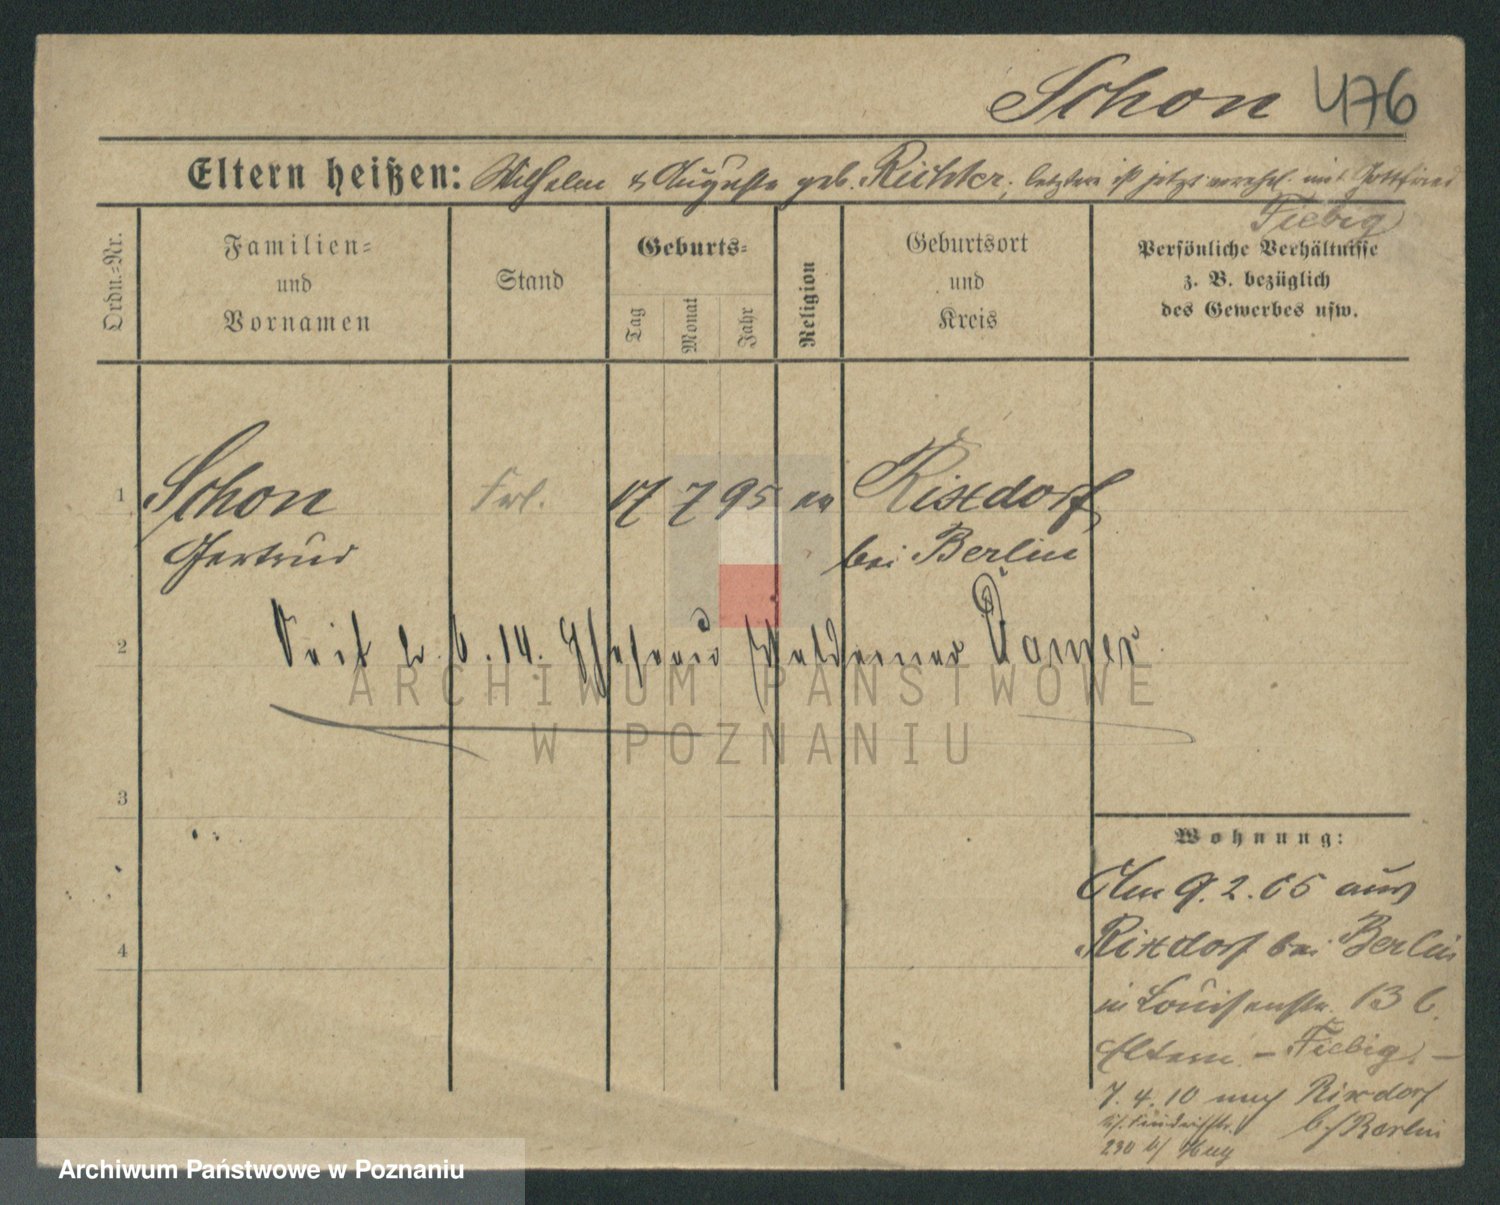 Schon 476
Eltern heißen: Wilhelm & Auguste geb. Richter, letztere ist jetzt verehel. mit Gottfried
Fiebig
Ordn.-Nr.
Familien-
und
Vornamen
Stand
Geburts-
Tag
Monat
Jahr
Religion
Geburtsort
und
Kreis
Persönliche Verhältnisse
z. B. bezüglich
des Gewerbes usw.
1 Schon Frl. 17 7 95 ev Rixdorf
Gertrud bei Berlin
2 Seit 6.14. Ehefrau Waldemar
ARCHIWUM PAŃSTWOWE
W POZNANIU
3
Wohnung:
Am 9.2.05 aus
4 Rixdorf bei Berlin
in Louisenstr. 13 b.
Eltern – Fiebig. –
7.4.10 nach Rixdorf
b/Berlin
230 b/
Archiwum Państwowe w Poznaniu